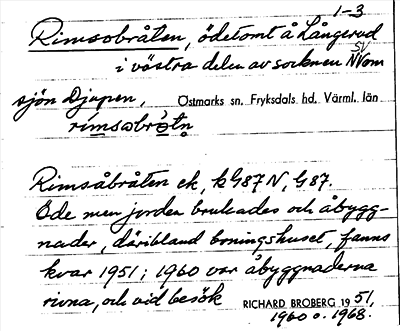 1-3
Rimsobråten, ödetomt å Långerud
SV
i västra delen av socknen NV om
sjön Djupen, Östmarks sn. Fryksdals hd. Värml. län
rimsobrȯ́tn̥
Rimsåbråten ek, k G87 N, G87.
Öde men jorden brukades och åbygg-
nader, däribland boningshuset, fanns
kvar 1951; 1960 var åbyggnaderna
rivna, och vid besök RICHARD BROBERG 1951,
1960 o. 1968.